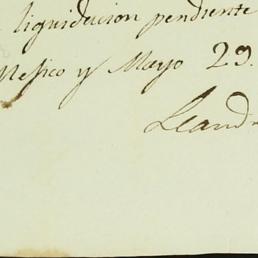 liquidacion pendiente
Mexico y Mayo 29.
Leand